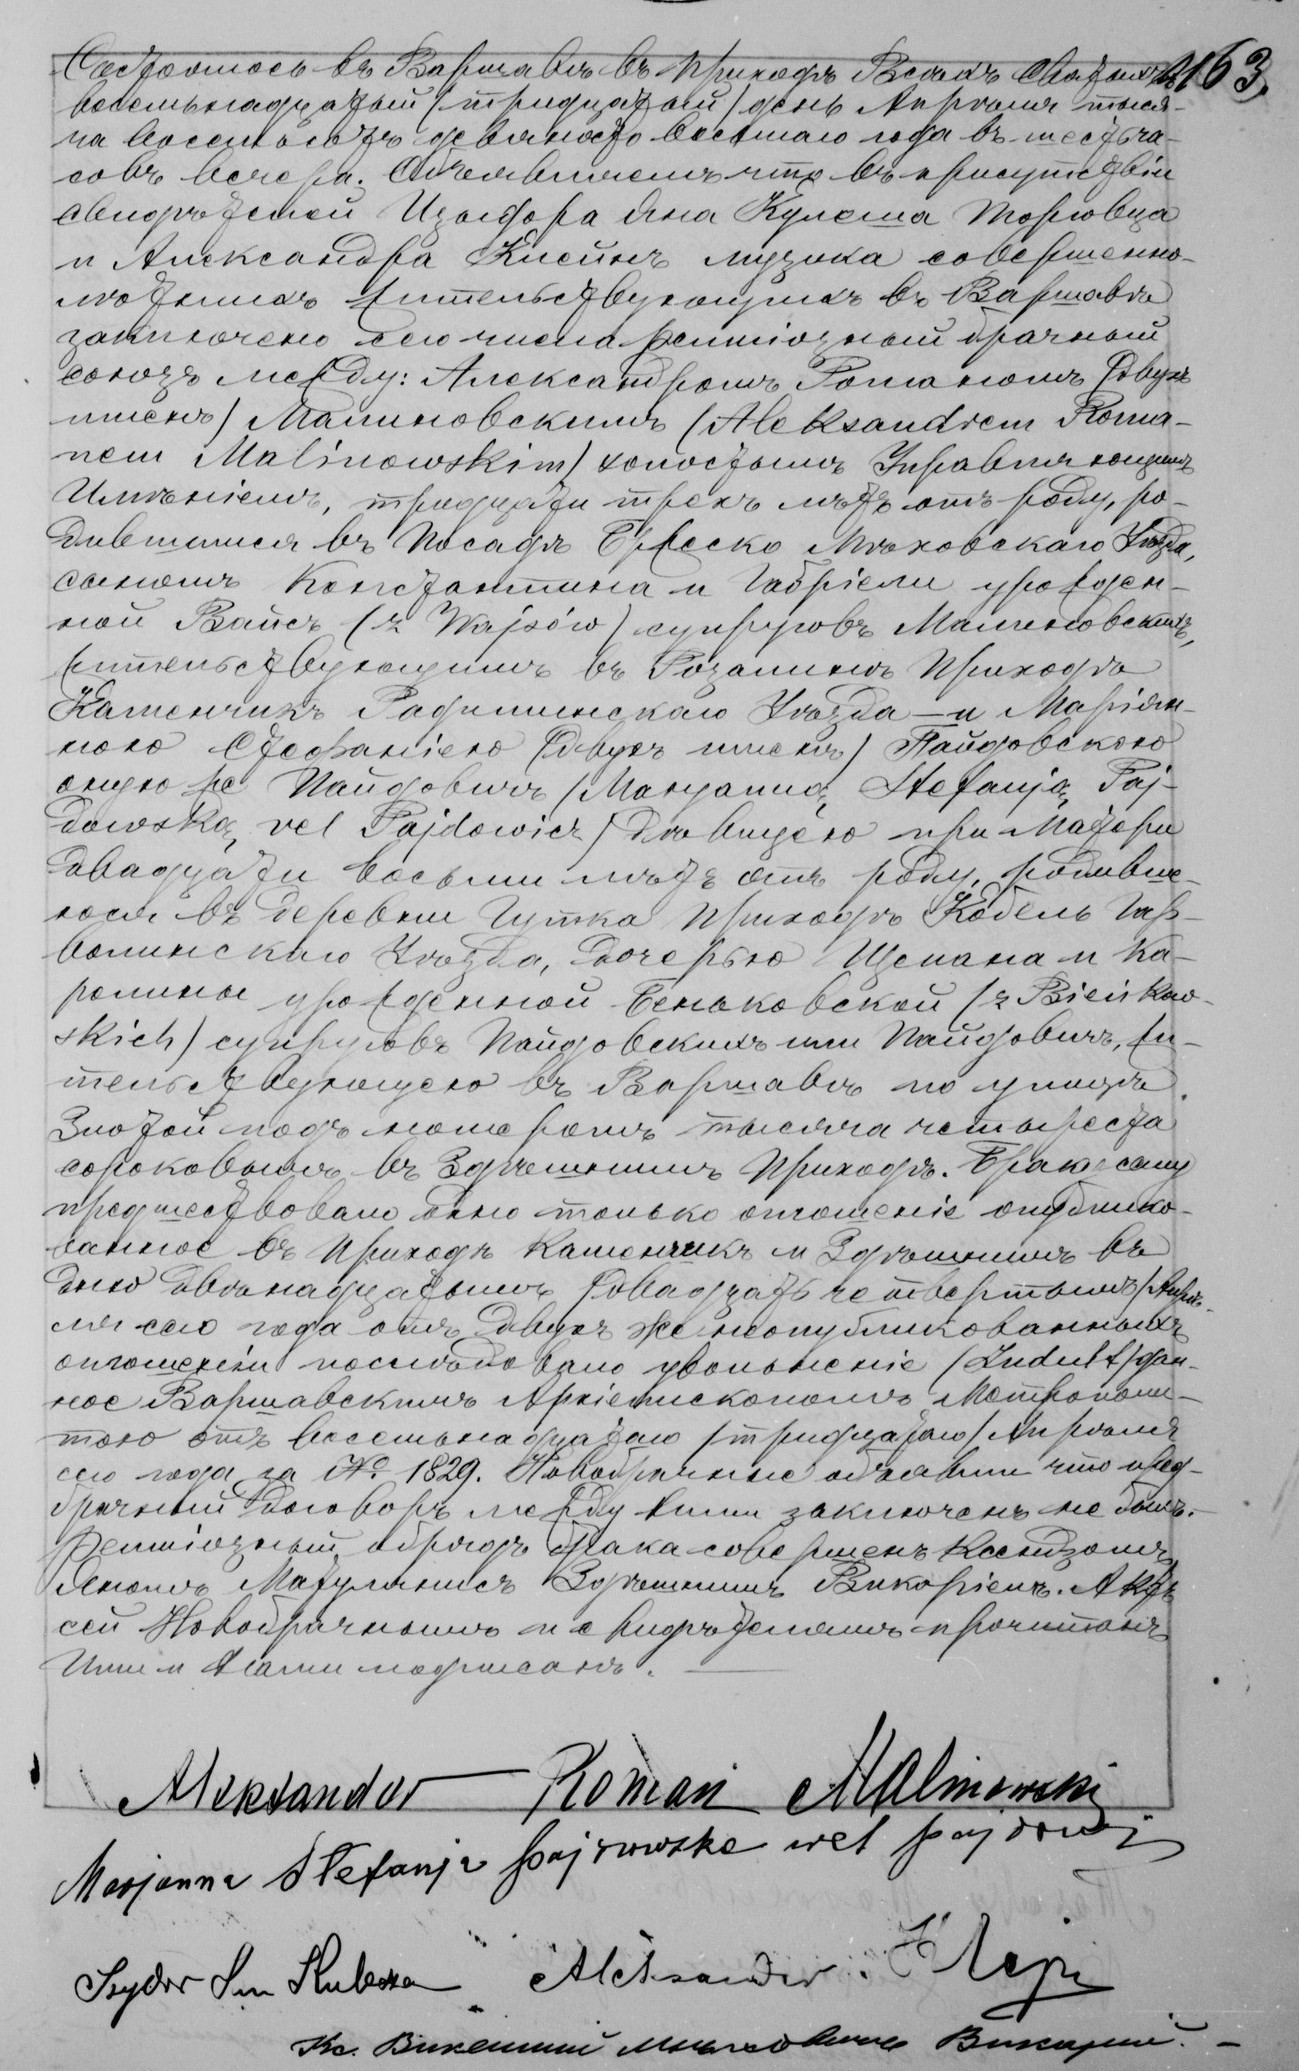 163
Состоялось въ Варшавѣ въ приходѣ Всѣхъ Святыхъ
восемьнадцатый (тридцатый) день Апрѣля тыся-
ча восемьсотъ девяносто восьмаго года въ шесть ча-
совъ вечера. Объявляемъ что въ присутствіи
свидѣтелей Изыдора Яна Кулеша торговца
и Александра музыка совершенно-
лѣтнихъ жительствующихъ въ Варшавѣ
заключено сего числа религіозный брачный
союзъ между: Александромъ Романомъ (двухъ
именъ) Малиновскимъ (Aleksandrem Roma-
nem Malinowskim) холостымъ Управляющимъ
Имѣніемъ, тридцати трехъ лѣтъ отъ роду, ро-
дившимся въ посадѣ Бржеско Мѣховскаго Уѣзда,
сыномъ Константина и Габріели урожден-
ной Вайсъ (z Wajsów) супруговъ Малиновскихъ,
жительствующимъ въ Розалинѣ прихода
Каменчикъ Радиминскаго Уѣзда — и Маріян-
ною Стефаніею (двухъ именъ) Пайдовскою
онужо же Пайдовичъ (Maryanną Stefanją Paj-
dowską vel Pajdowicz) дѣвицею при Матери
двадцати восьми лѣтъ отъ роду, родивше-
юся въ деревни Гутка приходѣ Кобель Гар-
волинскаго Уѣзда, дочерью Щепана и Ка-
ролины урожденной Беньковской (z Bieńkow-
skich) супруговъ Пайдовскихъ или Пайдовичъ, жи-
тельствующею въ Варшавѣ по улицѣ
Злотой подъ номеромъ тысяча четыреста
сороковымъ въ здѣшнимъ приходѣ. Браку сему
предшествовало одно только оглашеніе опублико-
ванное въ приходѣ Каменчикъ и здѣшнимъ въ
дню двѣнадцатымъ (двадцать четвертымъ) Апрѣ-
ля сего года отъ двухъ же неопубликованныхъ
оглашеніи послѣдовало увольненіе (Indult) дан-
ное Варшавскимъ Архіепископомъ Метрополи-
тою отъ восемьнадцатаго (тридцатаго) Апрѣля
сего года за № 1829. Новобрачные объявили что пред-
брачный договоръ между ними заключенъ не былъ.
Религіозный обрядъ брака совершенъ Ксендзомъ
Яномъ Матулянисъ здѣшнимъ Викаріемъ. Актъ
сей Новобрачнымъ и свидѣтелямъ прочитанъ
Ими и Нами подписанъ. —
Aleksander Roman Malinowski
Marjanna Stefanja Pajdowska vel Pajdowicz
Izydor Jan Kulesza Aleksander
Кс. Викентий Викарий. —